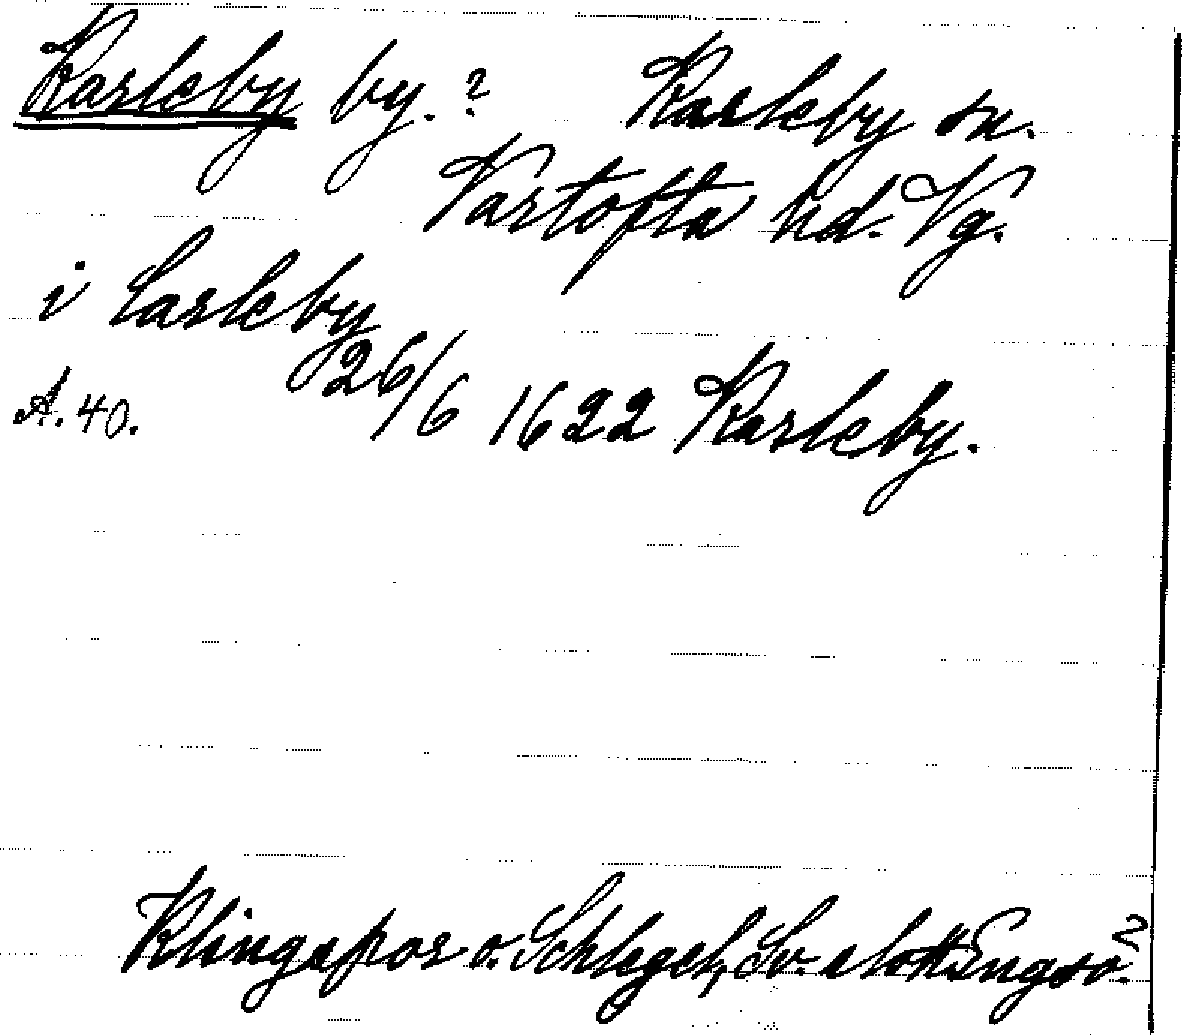 Karleby by.? Karleby sn.
Vartofta hd. Vg.
i Carleby
A. 40. 26/6 1622 Karleby.
Klingspor o. Schlegel, Sv. slott Engsö.